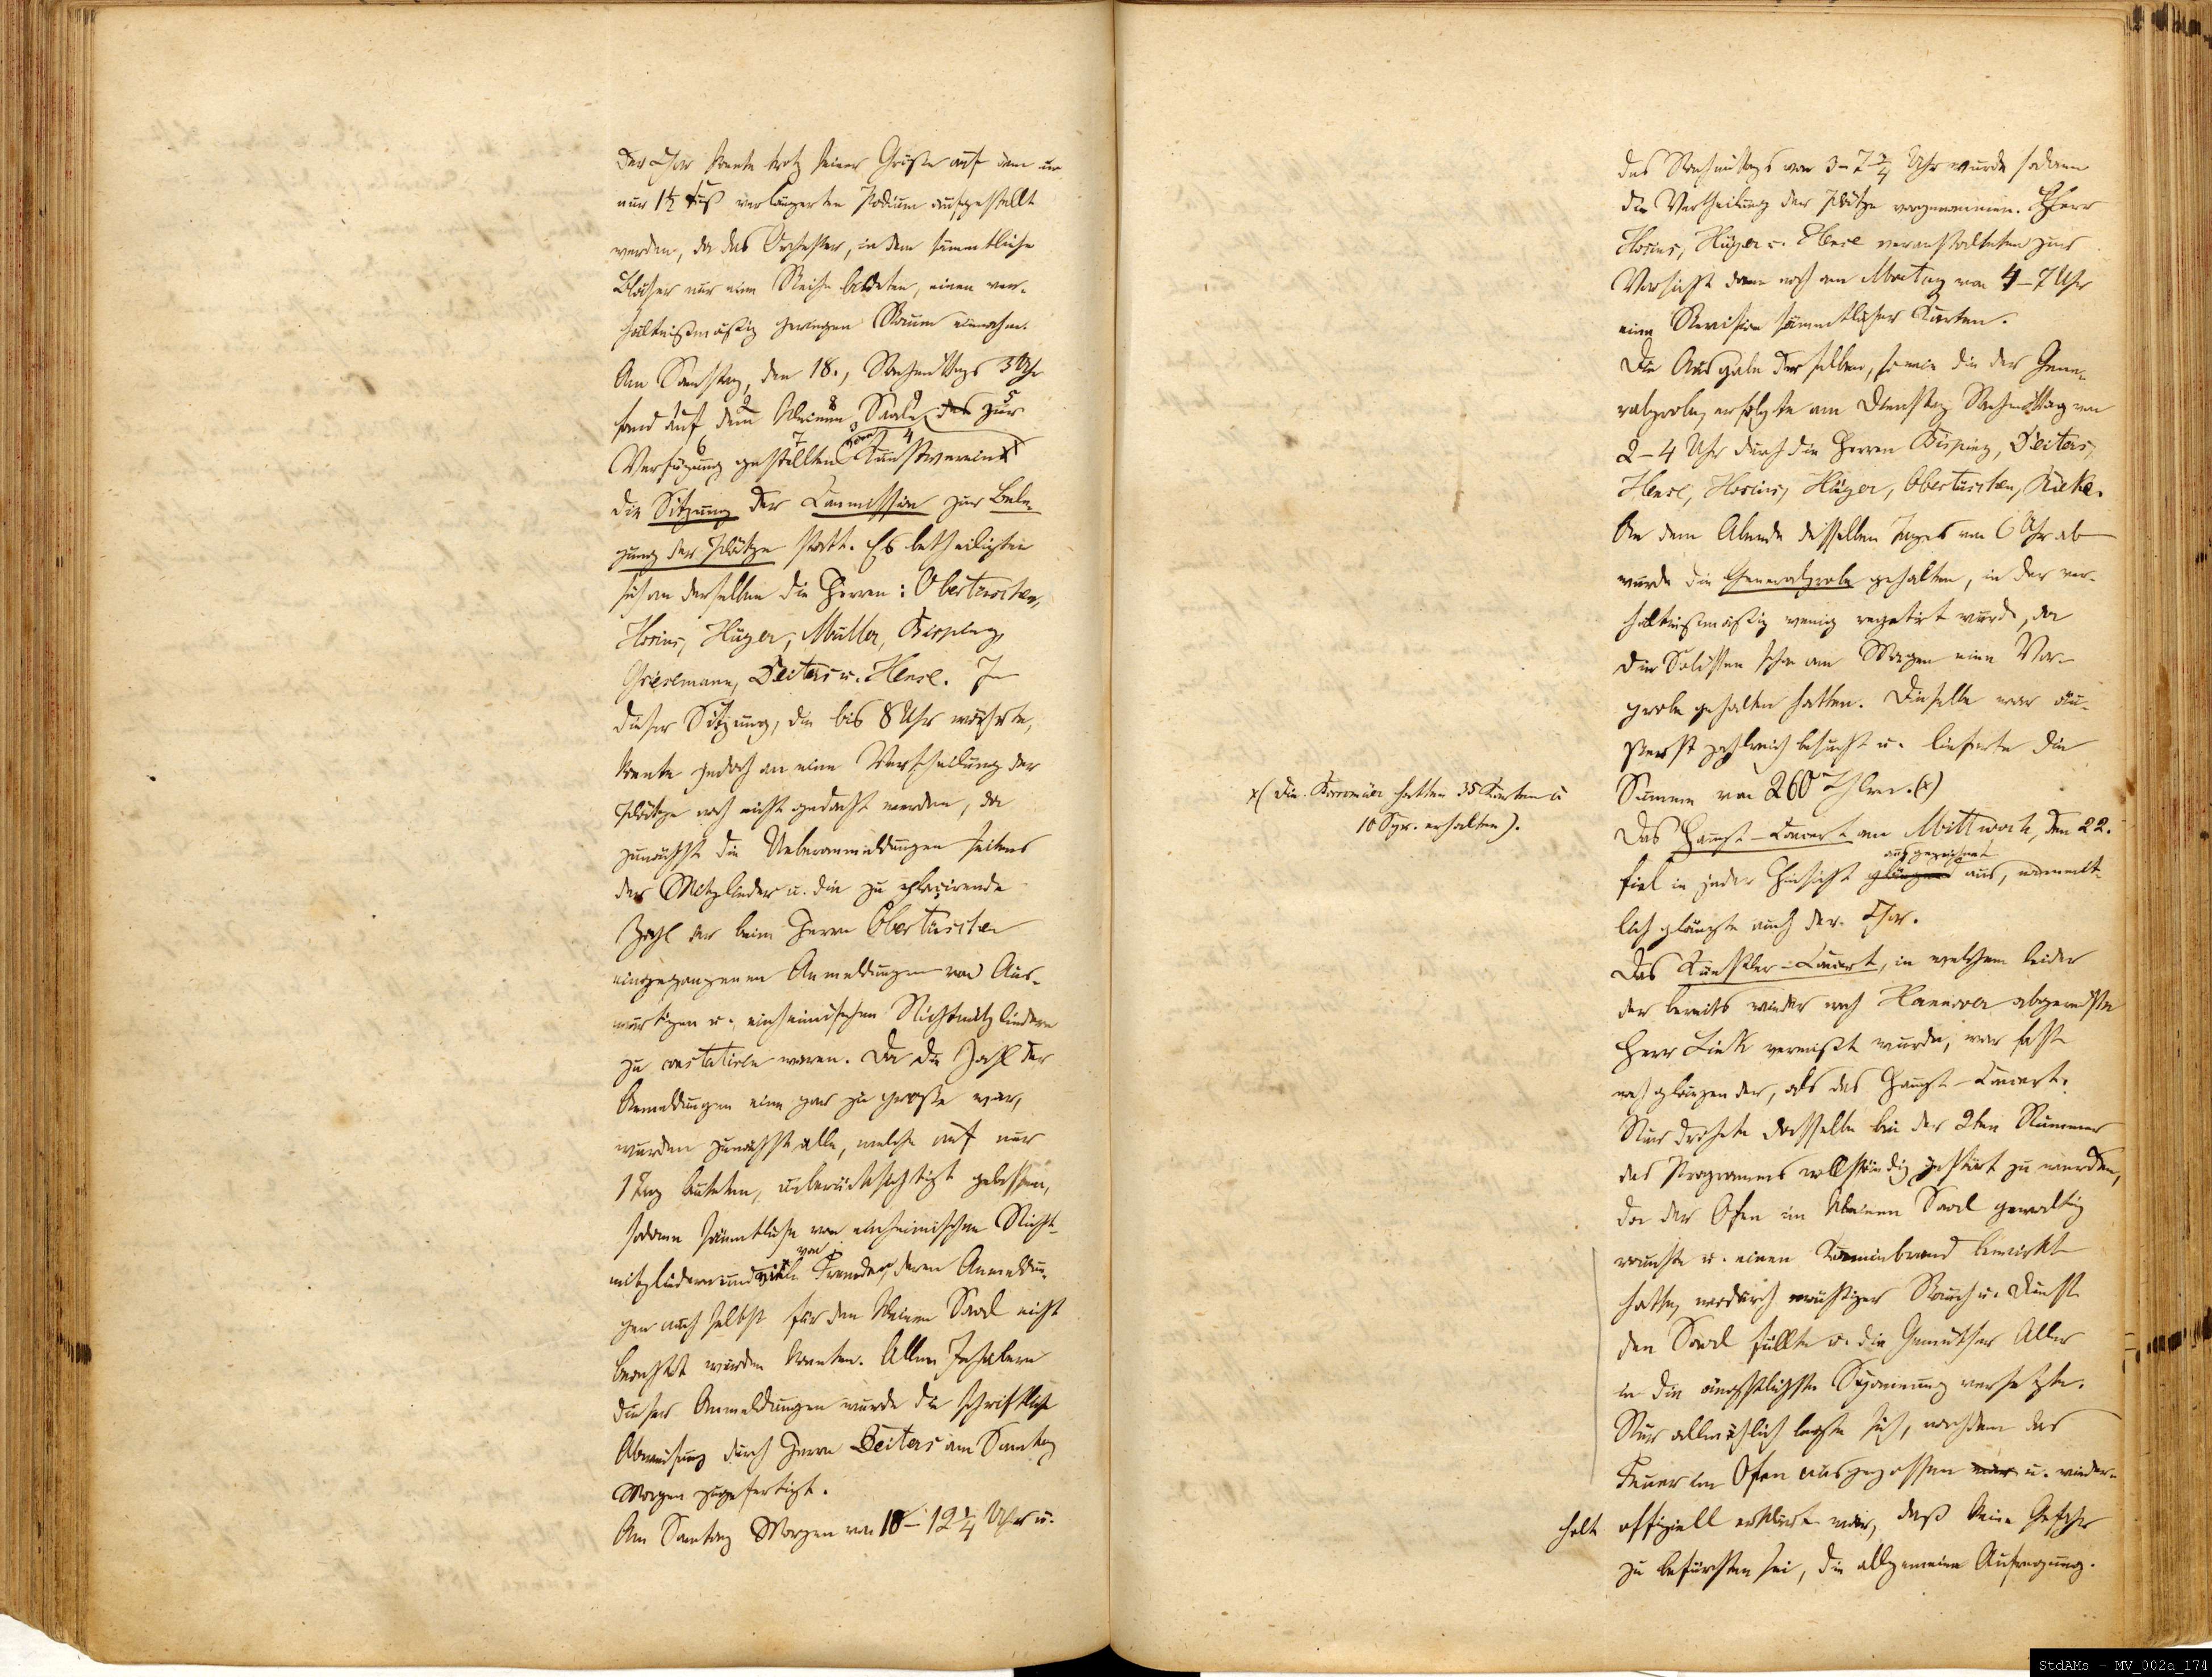 Der Chor konnte trotz seiner Größe auf dem um
nur 1½ Fuß verlängerten Podium aufgestellt
werden, da das Orchester, in dem sämmtliche
Bläser nur eine Reihe bildeten, einen ver-
hältnißmäßig geringen Raum einnahm.
Am Samstag, den 18., Nachmittags 3 Uhr
fand auf dem kleinen Saale des zur
Verfügung gestellten vom Kunstverein
die Sitzung der Commission zur Bele-
gung der Plätze statt. Es betheiligten
sich an derselben die Herren: Obertüschen,
Hosius, Hüger, Müller, Bisping,
Grieselmann, Deiters u. Hense. In
dieser Sitzung, die bis 8 Uhr währte,
konnte jedoch an eine Vertheilung der
Plätze noch nicht gedacht werden, da
zunächst die Ueberanmeldungen seitens
der Mitglieder u. die zu placirende
Zahl der beim Herrn Obertüschen
eingegangenen Anmeldungen von Aus-
wärtigen u. einheimischen Nichtmitgliedern
zu constatiren waren. Da die Zahl der
Anmeldungen eine gar zu große war,
wurden zunächst alle, welche auf nur
1 Tag lauteten, unberücksichtigt gelassen,
sodann sämmtliche von einheimischen Nicht-
mitgliedern und viele von Fremden, deren Anmeldun-
gen auch selbst für den kleinen Saal nicht
beachtet werden konnten. Allen Inhabern
dieser Anmeldungen wurde die schriftliche
Abweisung durch Herrn Deiters am Sonntag
Morgen zugefertigt.
Am Sonntag Morgen von 10–12¼ Uhr u.
des Nachmittags von 3–7¾ Uhr wurde sodann
die Vertheilung der Plätze vorgenommen. Herr
Hosius, Hüger u. Hense veranstalteten zur
Vorsicht dann noch am Montag von 4–7 Uhr
eine Revision sämmtlicher Karten.
Die Ausgabe derselben, sowie die der Gene-
ralprobe, erfolgte am Dienstag Nachmittag von
2–4 Uhr durch die Herren Bisping, Deiters,
Hense, Hosius, Hüger, Obertüschen,
An dem Abende desselben Tages von 6 Uhr ab
wurde die Generalprobe gehalten, in der ver-
hältnißmäßig wenig repetirt wurde, da
die Solisten schon am Morgen eine Vor-
probe gehalten hatten. Dieselbe war äu-
ßerst zahlreich besucht u. lieferte die
Summe von 260 Thlrn. (x)
x( Die hatten 35 Karten à
10 Sgr. erhalten).
Das Haupt-Concert am Mittwoch, den 22.
fiel in jeder Hinsicht glänzend ausgezeichnet aus, nament-
lich glänzte auch der Chor.
Das Künstler-Concert, in welchem leider
der bereits wieder nach Hannover abgereiste
Herr vermißt wurde, war fast
noch glänzender, als das Haupt-Concert.
Nur drohete dasselbe bei der 2ten Nummer
des Programms vollständig gestört zu werden,
da der Ofen im kleinen Saal gewaltig
rauchte u. einen Kaminbrand bewirkt
hatte, wodurch mächtiger Rauch u. Dunst
den Saal füllte u. die Gemüther Aller
in die ängstlichste Spannung versetzte.
Nur allmählich legte sich, nachdem das
Feuer im Ofen ausgegossen war u. wieder-
holt offiziell erklärt war, daß keine Gefahr
zu befürchten sei, die allgemeine Aufregung.
StdAMs - MV_002a_174